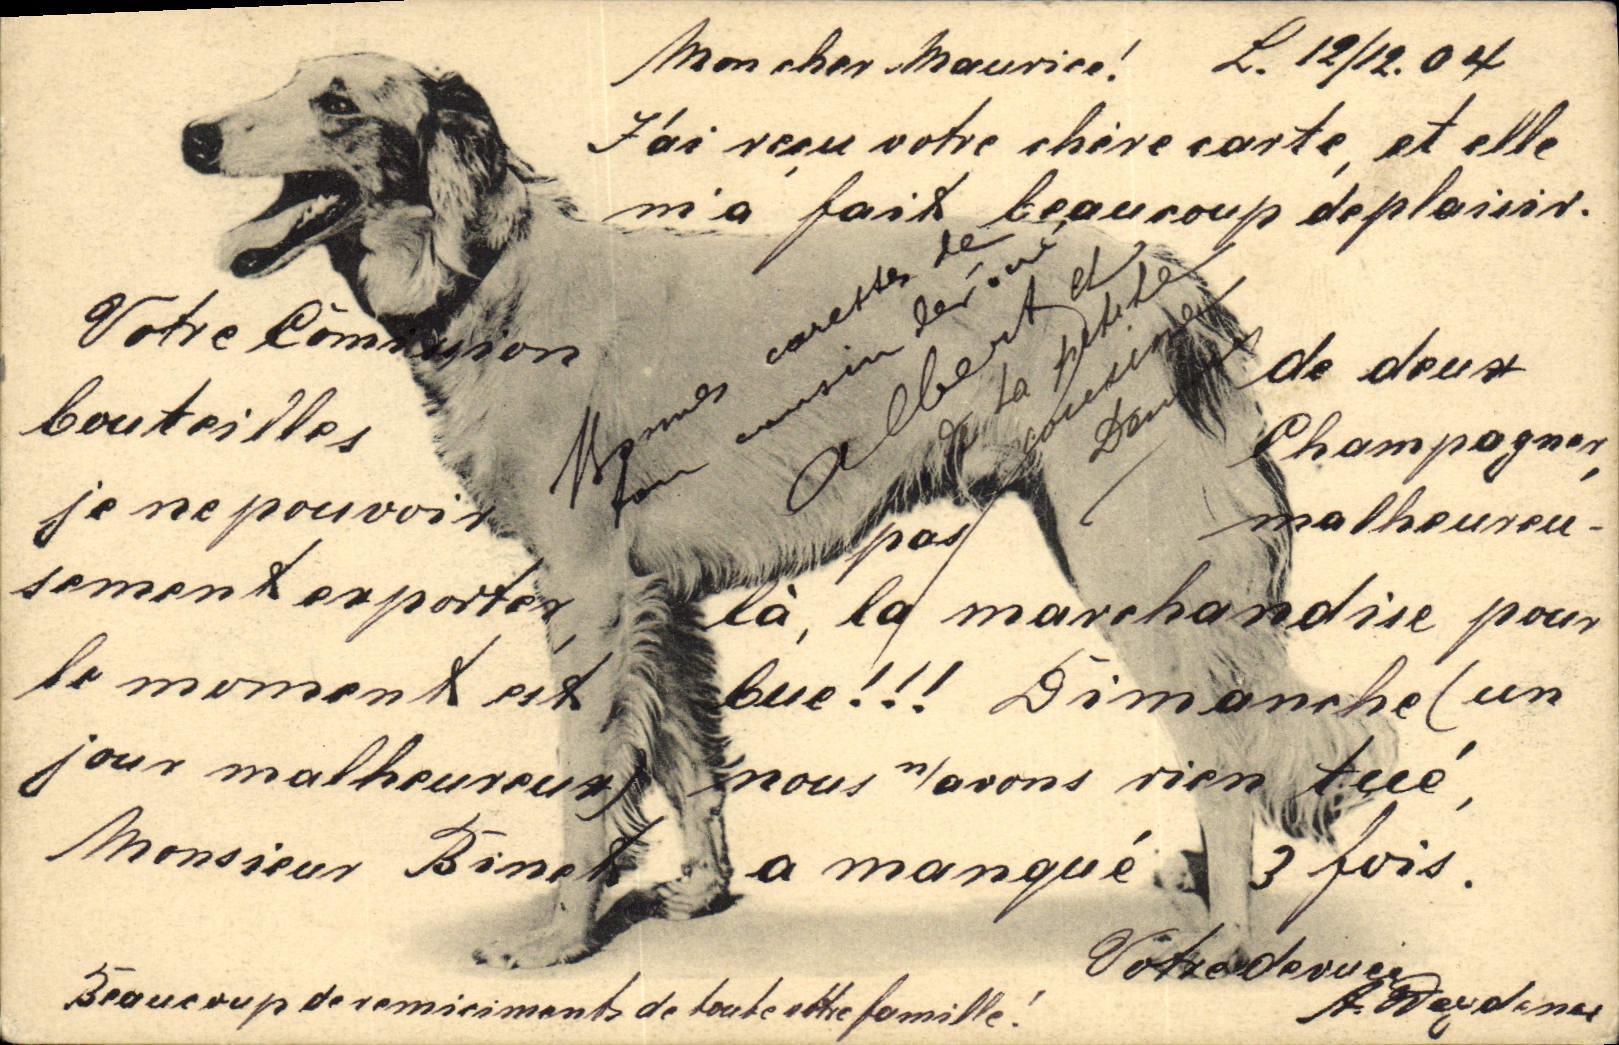 Mon cher Maurice! L. 12/12.04
J'ai reçu votre chère carte, et elle
m'a fait beaucoup de plaisir.
Votre Cômission de deux
bouteilles Champagner,
je ne pouvoir pas malheureu-
sement exporter là, la marchandise pour
le moment est bue!!! Dimanche (un
jour malheureux) nous n'avons rien tué,
Monsieur Binet a manqué 3 fois.
Votre
A.
Beaucoup de remiciments de toute vôtre famille!
Bonnes caresses de
ton cousin
Albert et
de la petite
cousine